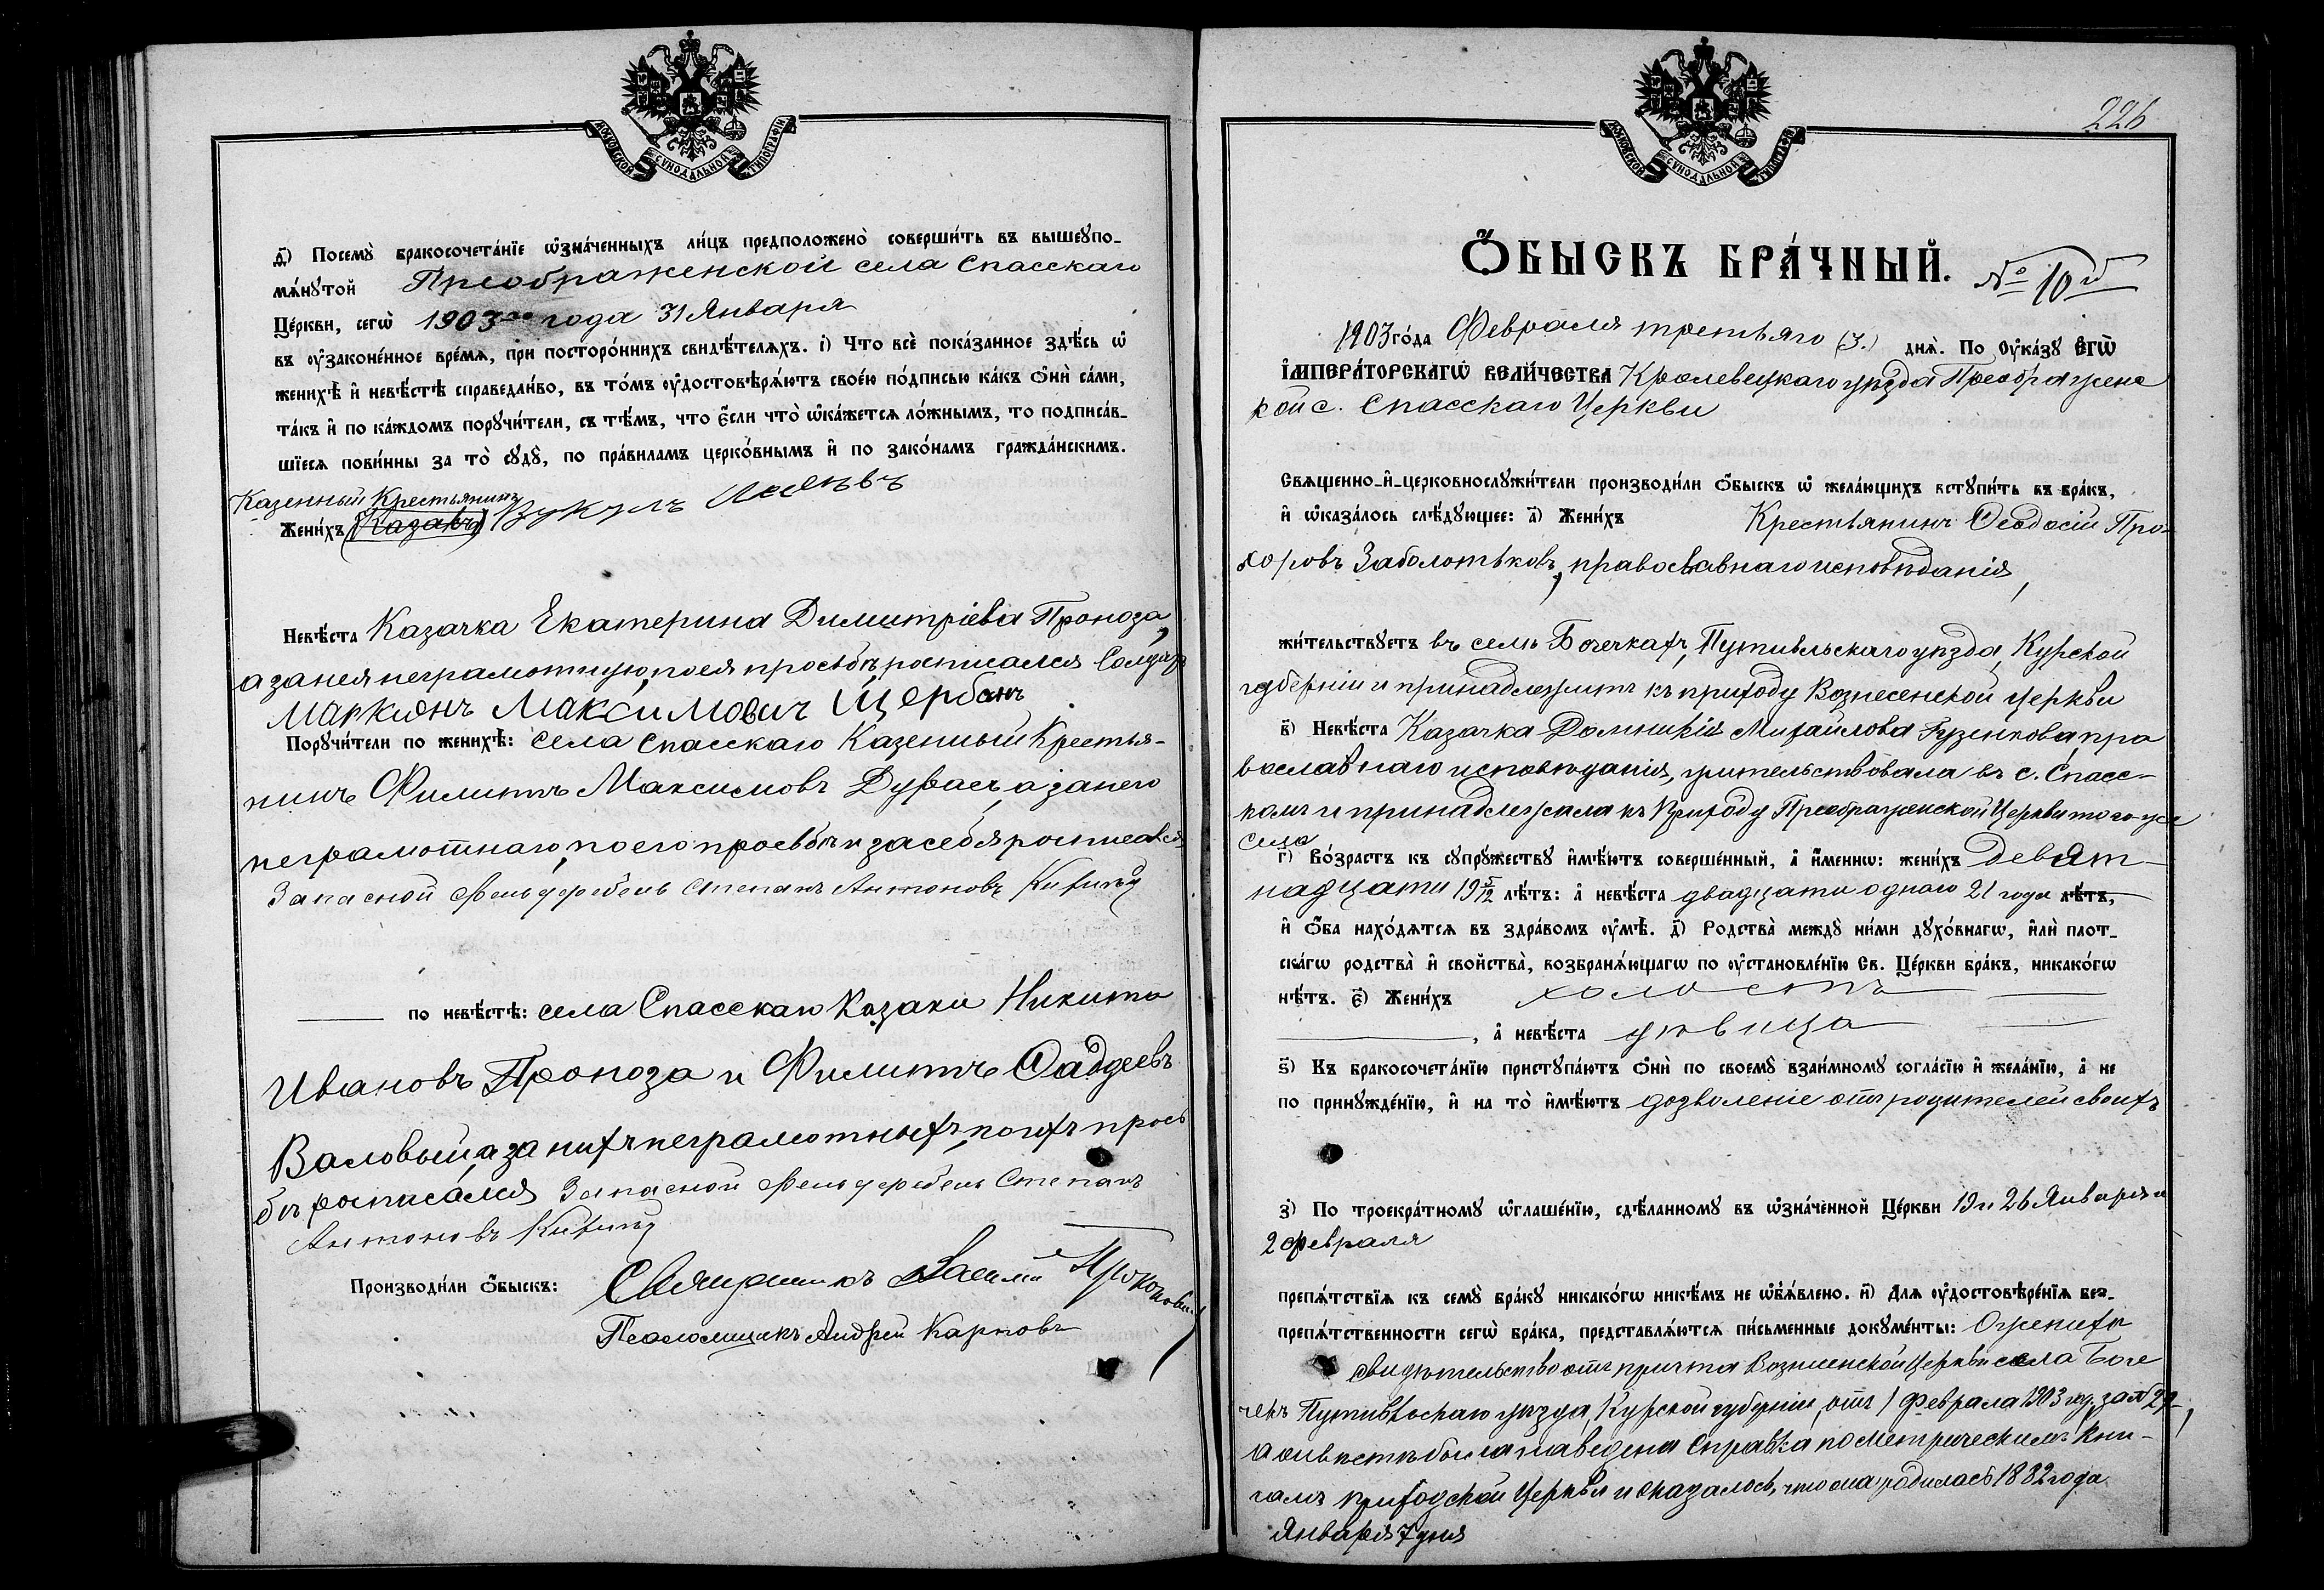 МОСКОВСКОЙ СѴНОДАЛЬНОЙ ТИПОГРАФІИ
д҃) Посемꙋ̀ бракосочета́нїе ѡ҆зна́ченныхъ ли́цъ предположено̀ соверши́ть въ вышеꙋпо-
мѧ́нꙋтой Преображенской села Спасскаго
Це́ркви, сегѡ̀ 1903го года 31 Января
въ ᲂу҆законе́нное вре́мѧ, при посторо́ннихъ свидѣ́телѧхъ. і҃) Что всѐ пока́занное здѣ́сь ѡ҆
женихѣ̀ и҆ невѣ́стѣ справедли́во, въ то́мъ ᲂу҆достовѣрѧ́ютъ свое́ю по́дписью ка́къ ѻ҆нѝ са́ми,
та́къ и҆ по ка́ждомъ порꙋчи́тели, съ тѣ́мъ, что є҆́сли что̀ ѡ҆ка́жетсѧ ло́жнымъ, то подписа́в-
шїесѧ пови́нны за то̀ сꙋдꙋ̀, по пра́виламъ церко́внымъ и҆ по зако́намъ гражда́нскимъ.
Казенный Крестьянинъ
Жени́хъ (Казакъ) Вукулъ
Невѣ́ста Казачка Екатерина Димитріева Проноза,
а за нея неграмотную, по ея просьбѣ, росписался Солдатъ
Маркіянъ Максимовичъ Щербакъ
Порꙋчи́тели по женихѣ̀: села Спасскаго Казенный Крестья-
нинъ Филиппъ Максимовъ, а за него
неграмотнаго, по его просьбѣ и за себя росписался
Запасной Фельдфебель Степанъ Антоновъ
по невѣ́стѣ: села Спасскаго Казаки Никита
Ивановъ Проноза и Филиппъ Фаддеевъ
Валовый, а за нихъ неграмотныхъ, по ихъ прось
бѣ росписался Запасной Фельдфебель Степанъ
Антоновъ
Производи́ли ѻ҆́быскъ: Священникъ Василій Прокоповичъ
Псаломщикъ Андрей Карповъ
226
МОСКОВСКОЙ СѴНОДАЛЬНОЙ ТИПОГРАФІИ
Ѻ҆́БЫСКЪ БРА́ЧНЫЙ. № 10й
1903 го́да Февраля третьяго (3.) днѧ̀. По ᲂу҆ка́зꙋ Є҆ГѠ̀
І҆МПЕРА́ТОРСКАГѠ ВЕЛИ́ЧЕСТВА Кролевецкаго уѣзда Преображенс
кой с. Спасскаго Церкви
Свѧщенно-и҆-церковнослꙋжи́тели производи́ли ѻ҆́быскъ ѡ҆ жела́ющихъ встꙋпи́ть въ бра́къ,
и҆ ѡ҆каза́лось слѣ́дꙋющее: а҃) Жени́хъ Крестьянинъ Ѳеодосій Про-
хоровъ Заболотьковъ, православнаго исповѣданія,
жи́тельствꙋетъ въ селѣ Бочечкахъ, Путивльскаго уѣзда, Курской
губерніи и принадлежитъ къ приходу Вознесенской церкви
в҃) Невѣ́ста Казачка Домникія Михайлова Гузенкова, пра
вославнаго исповѣданія, жительствовала въ с. Спасс-
комъ и принадлежала къ Приходу Преображенской Церкви того-же
села
г҃) Во́зрастъ къ сꙋпрꙋ́жествꙋ и҆мѣ́ютъ соверше́нный, а҆ и҆́меннѡ: жени́хъ девят-
надцати 19 5/12 лѣ́тъ: а҆ невѣ́ста двадцати одного 21 года лѣ́тъ,
и҆ ѻ҆́ба нахо́дѧтсѧ въ здра́вомъ ᲂу҆мѣ̀. д҃) Родства̀ междꙋ̀ ни́ми дꙋхо́внагѡ, и҆лѝ плот-
ска́гѡ родства̀ и҆ свойства̀, возбранѧ́ющагѡ по ᲂу҆становле́нїю Св. Це́ркви бра́къ, никако́гѡ
нѣ́тъ. є҃) Жени́хъ холостъ
, а҆ невѣ́ста дѣвица
ѕ҃) Къ бракосочета́нїю пристꙋпа́ютъ ѻ҆нѝ по своемꙋ̀ взаи́мномꙋ согла́сїю и҆ жела́нїю, а҆ не
по принꙋжде́нїю, и҆ на то̀ и҆мѣ́ютъ дозволеніе отъ родителей своихъ
з҃) По троекра́тномꙋ ѡ҆глаше́нїю, сдѣ́ланномꙋ въ ѡ҆зна́ченной Це́ркви 19 и 26 Января и
2 февраля
препѧ́тствїѧ къ семꙋ̀ бра́кꙋ никако́гѡ никѣ́мъ не ѡ҆б̾ѧ́влено. и҃) Длѧ ᲂу҆достовѣре́нїѧ без-
препѧ́тственности сегѡ̀ бра́ка, представлѧ́ютсѧ пи́сьменные докꙋме́нты: О женихѣ
свидѣтельство отъ причта Вознесенской Церкви села Боче
чекъ Путивльскаго уѣзда, Курской губерніи, отъ 1 Февраля 1903 год. за №
а о невѣстѣ была наведена справка по метрическимъ кни-
гамъ приходской Церкви и оказалось, что она родилась 1882 года
Января 7 дня